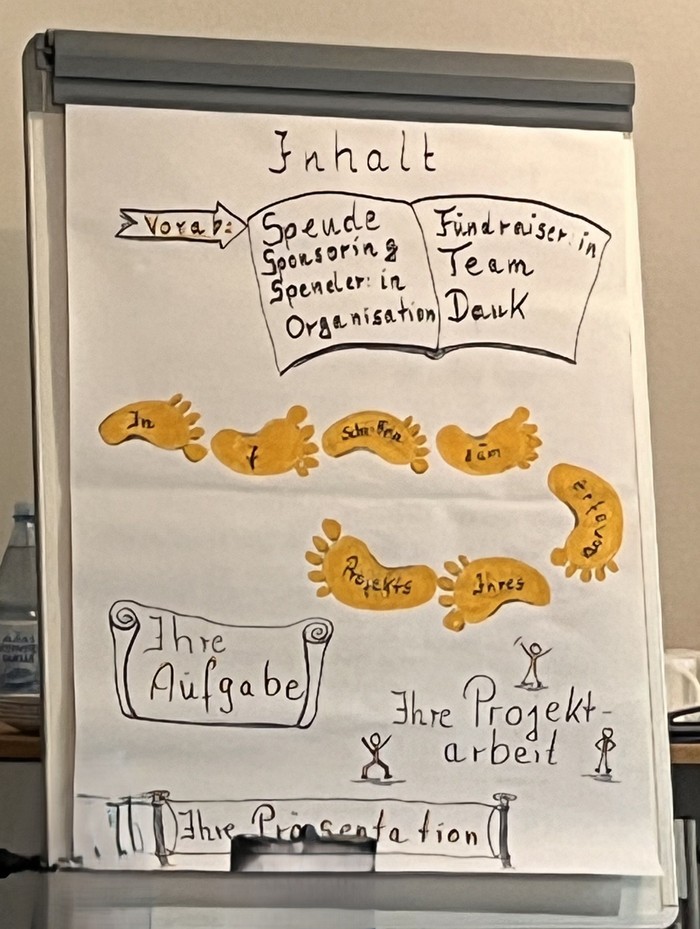 Inhalt
Vorab:
Spende
Sponsoring
Spender:in
Organisation
Fundraiser:in
Team
Dank
In
7
zum
Erfolg
Ihres
Projekts
Ihre
Aufgabe
Ihre Projekt-
arbeit
Ihre Präsentation